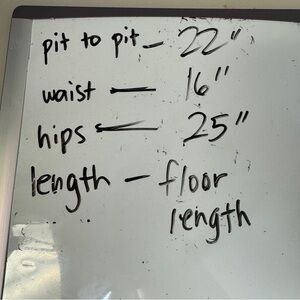 pit to pit - 22"
waist - 16"
hips - 25"
length - floor
length